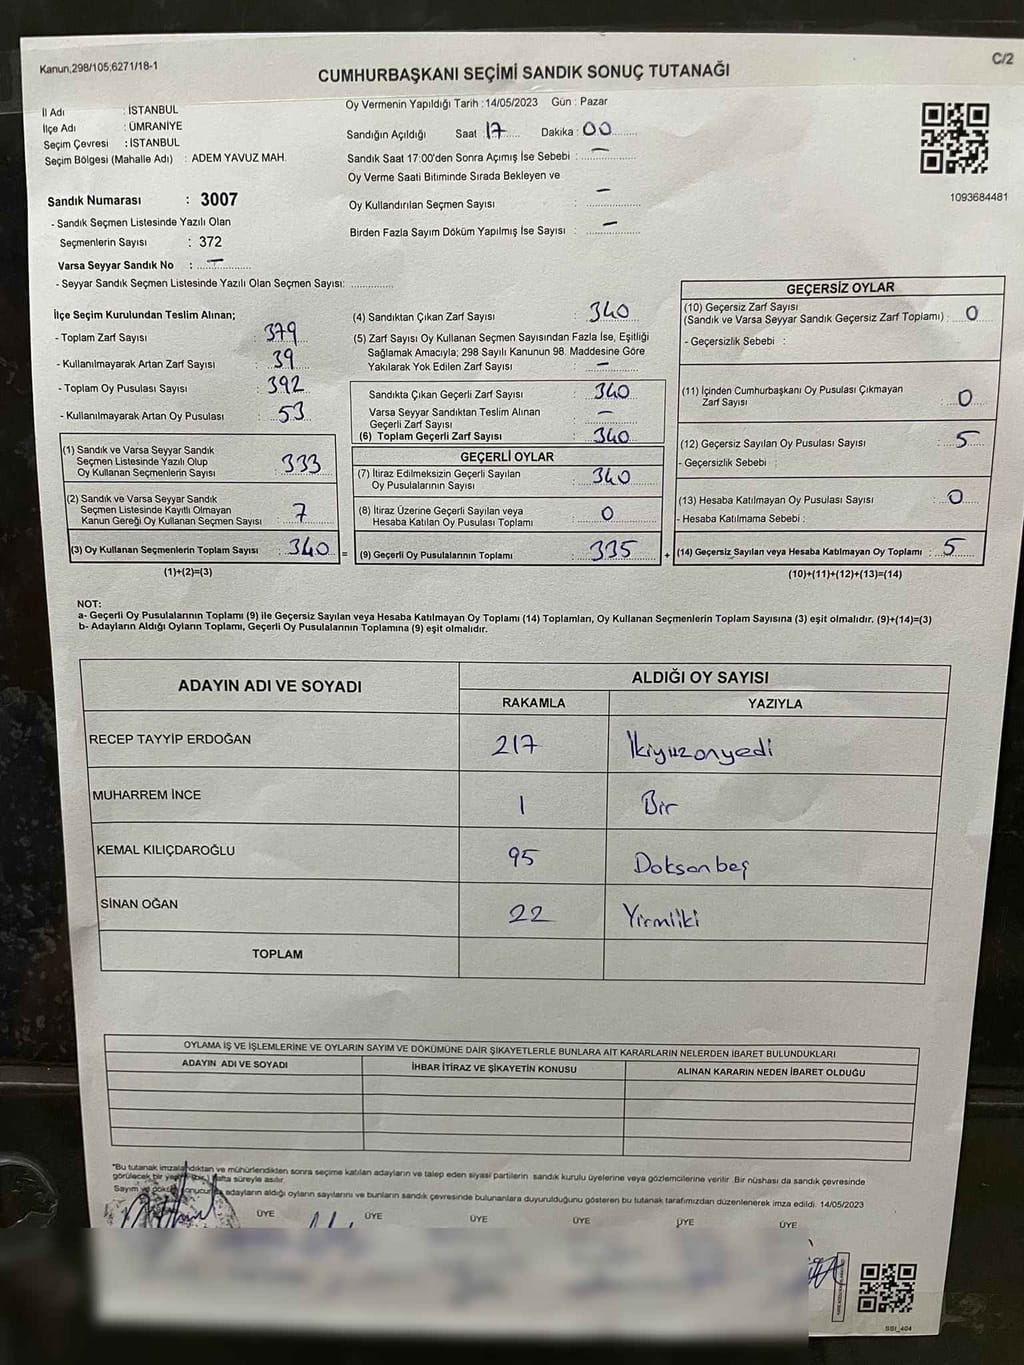 Kanun,298/105;6271/18-1
C/2
CUMHURBAŞKANI SEÇİMİ SANDIK SONUÇ TUTANAĞI
İl Adı : İSTANBUL
İlçe Adı : ÜMRANİYE
Seçim Çevresi : İSTANBUL
Seçim Bölgesi (Mahalle Adı) : ADEM YAVUZ MAH.
Sandık Numarası : 3007
- Sandık Seçmen Listesinde Yazılı Olan
Seçmenlerin Sayısı : 372
Varsa Seyyar Sandık No : –
- Seyyar Sandık Seçmen Listesinde Yazılı Olan Seçmen Sayısı: ..............
Oy Vermenin Yapıldığı Tarih : 14/05/2023 Gün : Pazar
Sandığın Açıldığı Saat : 17 Dakika : 00
Sandık Saat 17:00'den Sonra Açımış İse Sebebi : –
Oy Verme Saati Bitiminde Sırada Bekleyen ve
Oy Kullandırılan Seçmen Sayısı : –
Birden Fazla Sayım Döküm Yapılmış İse Sayısı : –
1093684481
İlçe Seçim Kurulundan Teslim Alınan;
- Toplam Zarf Sayısı : 379
- Kullanılmayarak Artan Zarf Sayısı : 39
- Toplam Oy Pusulası Sayısı : 392
- Kullanılmayarak Artan Oy Pusulası : 53
(1) Sandık ve Varsa Seyyar Sandık
Seçmen Listesinde Yazılı Olup
Oy Kullanan Seçmenlerin Sayısı : 333
(2) Sandık ve Varsa Seyyar Sandık
Seçmen Listesinde Kayıtlı Olmayan
Kanun Gereği Oy Kullanan Seçmen Sayısı : 7
(3) Oy Kullanan Seçmenlerin Toplam Sayısı : 340 =
(1)+(2)=(3)
(4) Sandıktan Çıkan Zarf Sayısı : 340
(5) Zarf Sayısı Oy Kullanan Seçmen Sayısından Fazla İse, Eşitliği
Sağlamak Amacıyla; 298 Sayılı Kanunun 98. Maddesine Göre
Yakılarak Yok Edilen Zarf Sayısı : –
Sandıkta Çıkan Geçerli Zarf Sayısı : 340
Varsa Seyyar Sandıktan Teslim Alınan
Geçerli Zarf Sayısı : –
(6) Toplam Geçerli Zarf Sayısı : 340
GEÇERLİ OYLAR
(7) İtiraz Edilmeksizin Geçerli Sayılan
Oy Pusulalarının Sayısı : 340
(8) İtiraz Üzerine Geçerli Sayılan veya
Hesaba Katılan Oy Pusulası Toplamı : 0
(9) Geçerli Oy Pusulalarının Toplamı : 335 +
GEÇERSİZ OYLAR
(10) Geçersiz Zarf Sayısı
(Sandık ve Varsa Seyyar Sandık Geçersiz Zarf Toplamı) : 0
- Geçersizlik Sebebi :
(11) İçinden Cumhurbaşkanı Oy Pusulası Çıkmayan
Zarf Sayısı : 0
(12) Geçersiz Sayılan Oy Pusulası Sayısı : 5
- Geçersizlik Sebebi :
(13) Hesaba Katılmayan Oy Pusulası Sayısı : 0
- Hesaba Katılmama Sebebi :
(14) Geçersiz Sayılan veya Hesaba Katılmayan Oy Toplamı : 5
(10)+(11)+(12)+(13)=(14)
NOT:
a- Geçerli Oy Pusulalarının Toplamı (9) ile Geçersiz Sayılan veya Hesaba Katılmayan Oy Toplamı (14) Toplamları, Oy Kullanan Seçmenlerin Toplam Sayısına (3) eşit olmalıdır. (9)+(14)=(3)
b- Adayların Aldığı Oyların Toplamı, Geçerli Oy Pusulalarının Toplamına (9) eşit olmalıdır.
ADAYIN ADI VE SOYADI
ALDIĞI OY SAYISI
RAKAMLA YAZIYLA
RECEP TAYYİP ERDOĞAN 217 İkiyüzonyedi
MUHARREM İNCE 1 Bir
KEMAL KILIÇDAROĞLU 95 Doksanbeş
SİNAN OĞAN 22 Yirmiiki
TOPLAM
OYLAMA İŞ VE İŞLEMLERİNE VE OYLARIN SAYIM VE DÖKÜMÜNE DAİR ŞİKAYETLERLE BUNLARA AİT KARARLARIN NELERDEN İBARET BULUNDUKLARI
ADAYIN ADI VE SOYADI İHBAR İTİRAZ VE ŞİKAYETİN KONUSU ALINAN KARARIN NEDEN İBARET OLDUĞU
"Bu tutanak imzalandıktan ve mühürlendikten sonra seçime katılan adayların ve talep eden siyasi partilerin sandık kurulu üyelerine veya gözlemcilerine verilir. Bir nüshası da sandık çevresinde
görülecek bir yere (bir) hafta süreyle asılır.
Sayım ve döküm sonucunda adayların aldığı oyların sayılarını ve bunların sandık çevresinde bulunanlara duyurulduğunu gösteren bu tutanak tarafımızdan düzenlenerek imza edildi. 14/05/2023
ÜYE ÜYE ÜYE ÜYE ÜYE ÜYE
SSI_404